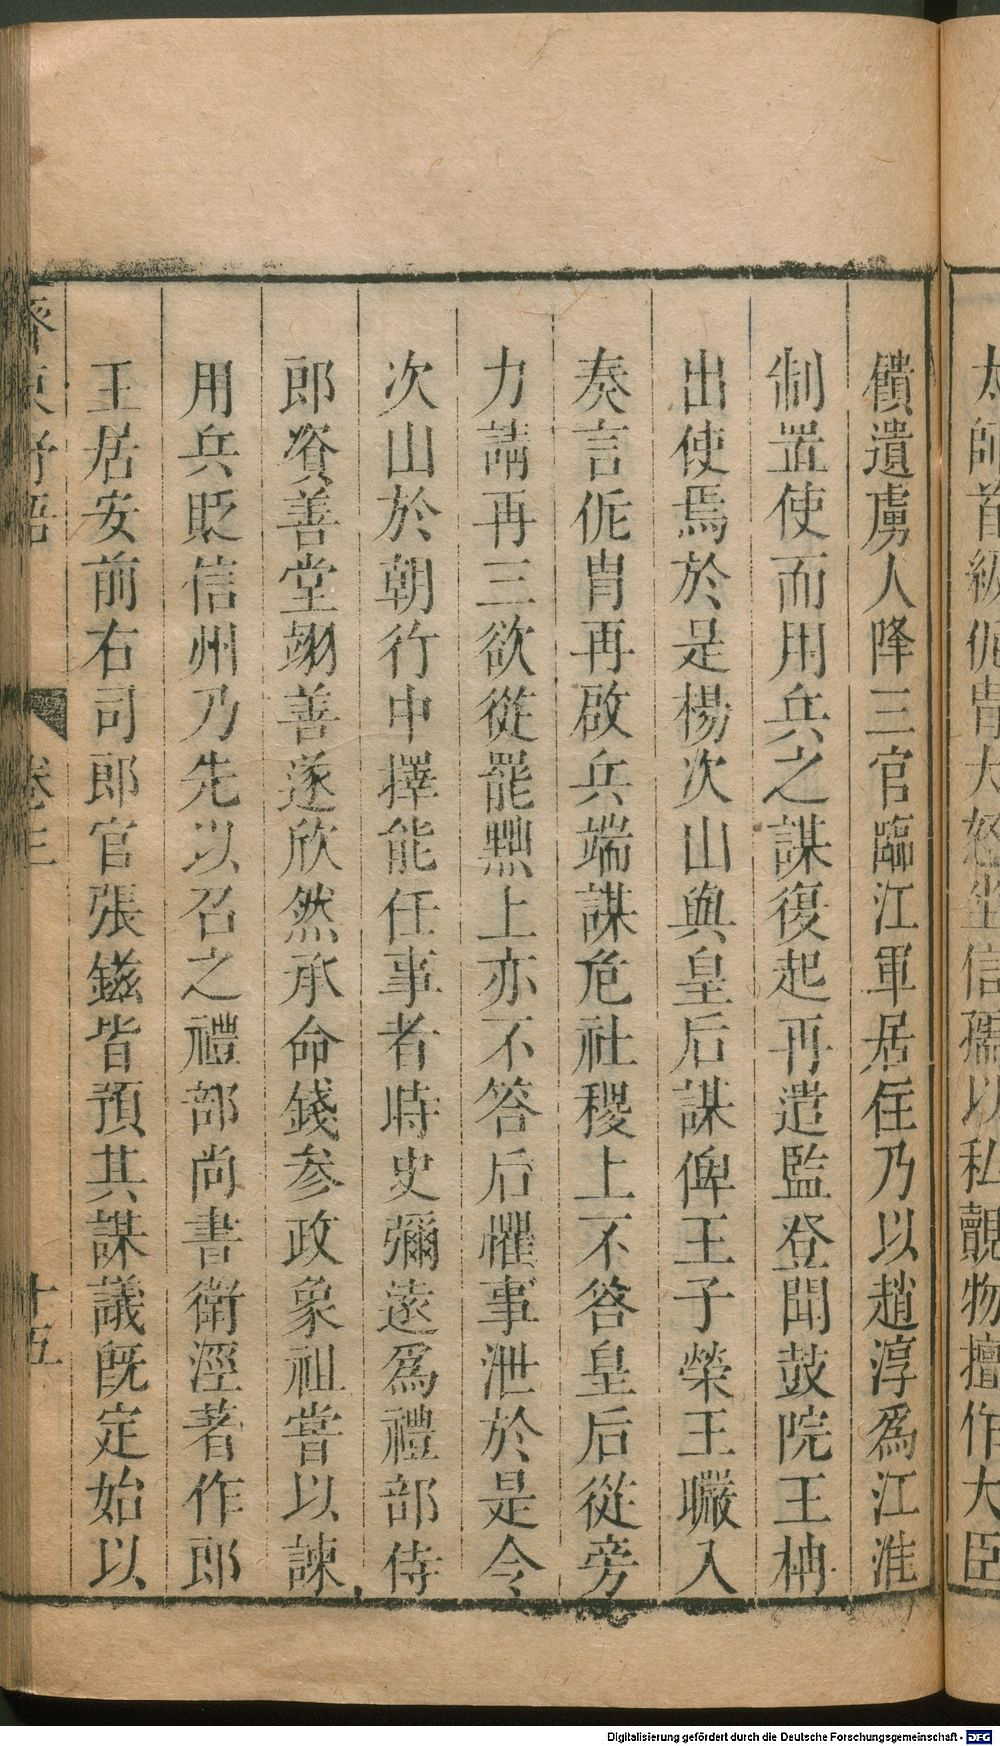 太師首級侂冑大怒坐信孺以私覿物擅作大臣
饋遺虜人降三官臨江軍居住乃以趙淳爲江淮
制置使而用兵之謀復起再遣監登聞鼓院王柟
出使焉於是楊次山與皇后謀俾王子榮王曮入
奏言侂冑再啟兵端謀危社稷上不答皇后從旁
力請再三欲從罷黜上亦不答后懼事泄於是令
次山於朝行中擇能任事者時史彌遠爲禮部侍
郎資善堂翊善遂欣然承命錢參政象祖嘗以諫
用兵貶信州乃先以召之禮部尚書衛涇著作郎
王居安前右司郎官張鎡皆預其謀議既定始以
齊東野語 卷三 十五
Digitalisierung gefördert durch die Deutsche Forschungsgemeinschaft - DFG